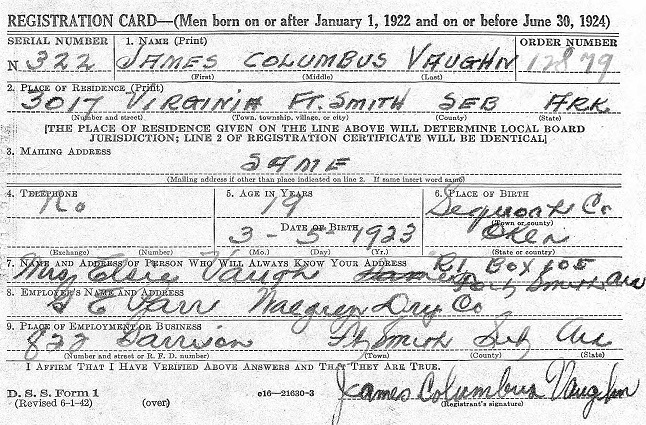 REGISTRATION CARD—(Men born on or after January 1, 1922 and on or before June 30, 1924)
SERIAL NUMBER 1. NAME (Print) ORDER NUMBER
N 322 JAMES COLUMBUS VAUGHN 12879
(First) (Middle) (Last)
2. PLACE OF RESIDENCE (Print)
3017 VIRGINIA FT. SMITH SEB ARK
(Number and street) (Town, township, village, or city) (County) (State)
[THE PLACE OF RESIDENCE GIVEN ON THE LINE ABOVE WILL DETERMINE LOCAL BOARD
JURISDICTION; LINE 2 OF REGISTRATION CERTIFICATE WILL BE IDENTICAL]
3. MAILING ADDRESS
SAME
(Mailing address if other than place indicated on line 2. If same insert word same)
4. TELEPHONE 5. AGE IN YEARS 6. PLACE OF BIRTH
No 19 Sequoah Co
DATE OF BIRTH (Town or county)
3-5-1923 Okla
(Exchange) (Number) (Mo.) (Day) (Yr.) (State or country)
7. NAME AND ADDRESS OF PERSON WHO WILL ALWAYS KNOW YOUR ADDRESS
Mrs, Elsie Vaughn R.1 BOX 105
Fort Smith Ark
8. EMPLOYER'S NAME AND ADDRESS
Walgren Dry Co
9. PLACE OF EMPLOYMENT OR BUSINESS
Garrison Ft, Smith Seb Ark
(Number and street or R. F. D. number) (Town) (County) (State)
I AFFIRM THAT I HAVE VERIFIED ABOVE ANSWERS AND THAT THEY ARE TRUE.
D. S. S. Form 1 c16—21630-3 James Columbus Vaughn
(Revised 6-1-42) (over) (Registrant's signature)